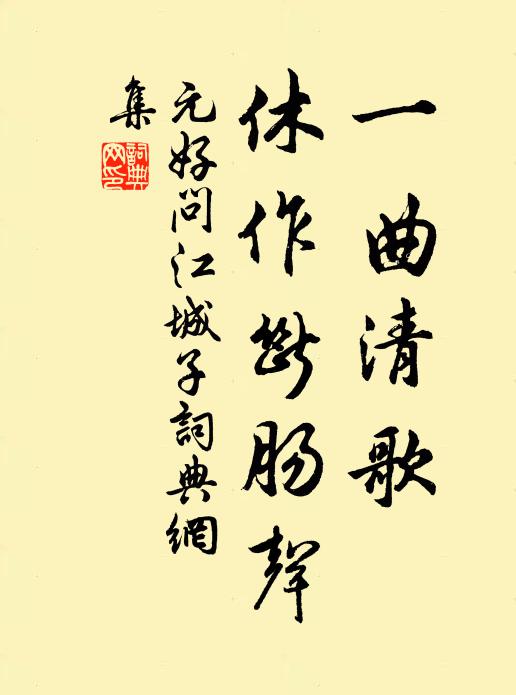 一曲清歌
休作斷肠聲
元好问江城子詞典網
集
詞典
网印